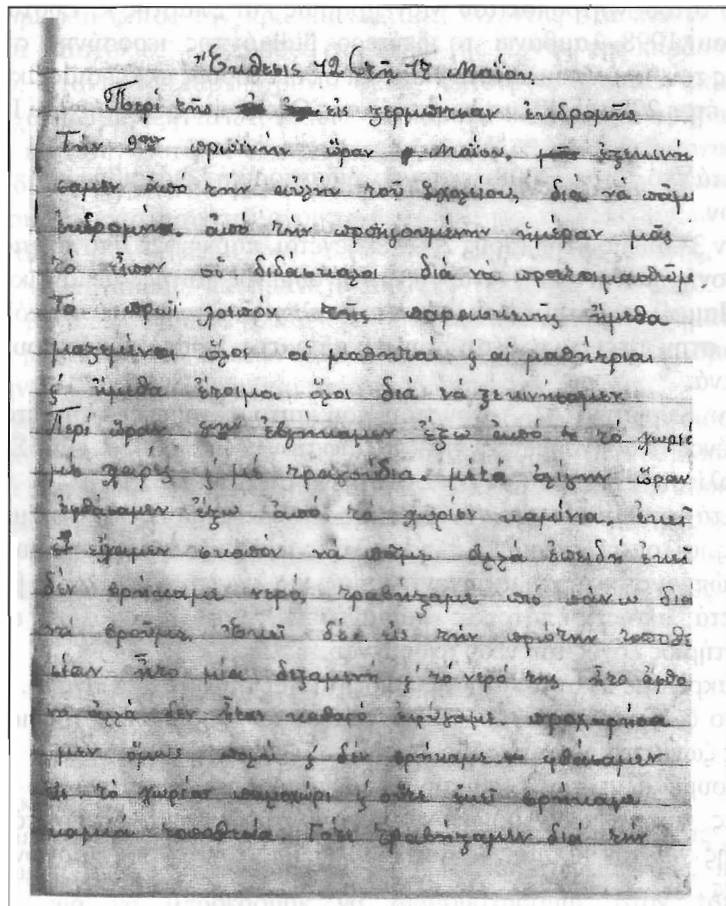 Ἔκθεσις 12 τῇ 17 Μαΐου
Περὶ τῆς εἰς ἐκδρομῆς
Τὴν 9ην πρωϊνὴν ὥραν Μαΐου, ἐξεκινή
σαμεν ἀπο την αὐλην τοῦ Σχολείου, δια νὰ πᾶμε
ἐκδρομήν. ἀπὸ την προηγουμενην ἡμέραν μᾶς
τὸ εἶπον οἱ διδάσκαλοι διὰ νὰ προετοιμασθῶμε
Το πρωῒ λοιπὸν τῆς παρασκευῆς ἤμεθα
μαζεμένοι ὅλοι οἱ μαθηταὶ ϗ αἱ μαθήτριαι
ϗ ἤμεθα ἕτοιμοι ὅλοι διὰ νὰ ξεκινήσαμεν
Περὶ ὥραν ἐβγήκαμεν ἔξω ἀπὸ τὸ χωριὸ
μὲ χαρὲς ϗ μὲ τραγούδια. μετὰ ὀλίγην ὥραν
ἐφθάσαμεν ἔξω ἀπὸ τὸ χωρίον καμίνια. ἐκεῖ
εἴχαμεν σκοπὸν νὰ πᾶμε. ἀλλὰ ἐπειδὴ ἐκεῖ
δὲν βρήκαμε νερό, τραβήξαμε πιο πάνω δια
νὰ βροῦμε. Ἐκεῖ δὲ εἰς τὴν πρώτην τοποθε
σίαν ἦτο μία δεξαμενὴ ϗ τὸ νερὸ της ἦτο ἄφθο
νο ἀλλὰ δὲν ἦταν καθαρὸ ἐφύγαμε. προχωρήσα
μεν ὅμως πολὺ ϗ δὲν βρήκαμε φθάσαμεν
εἰς τὸ χωρίον παλιοχώρι ϗ οὔτε ἐκεῖ βρήκαμε
καμμιὰ τοποθεσία. Τότε τραβήξαμεν διὰ την